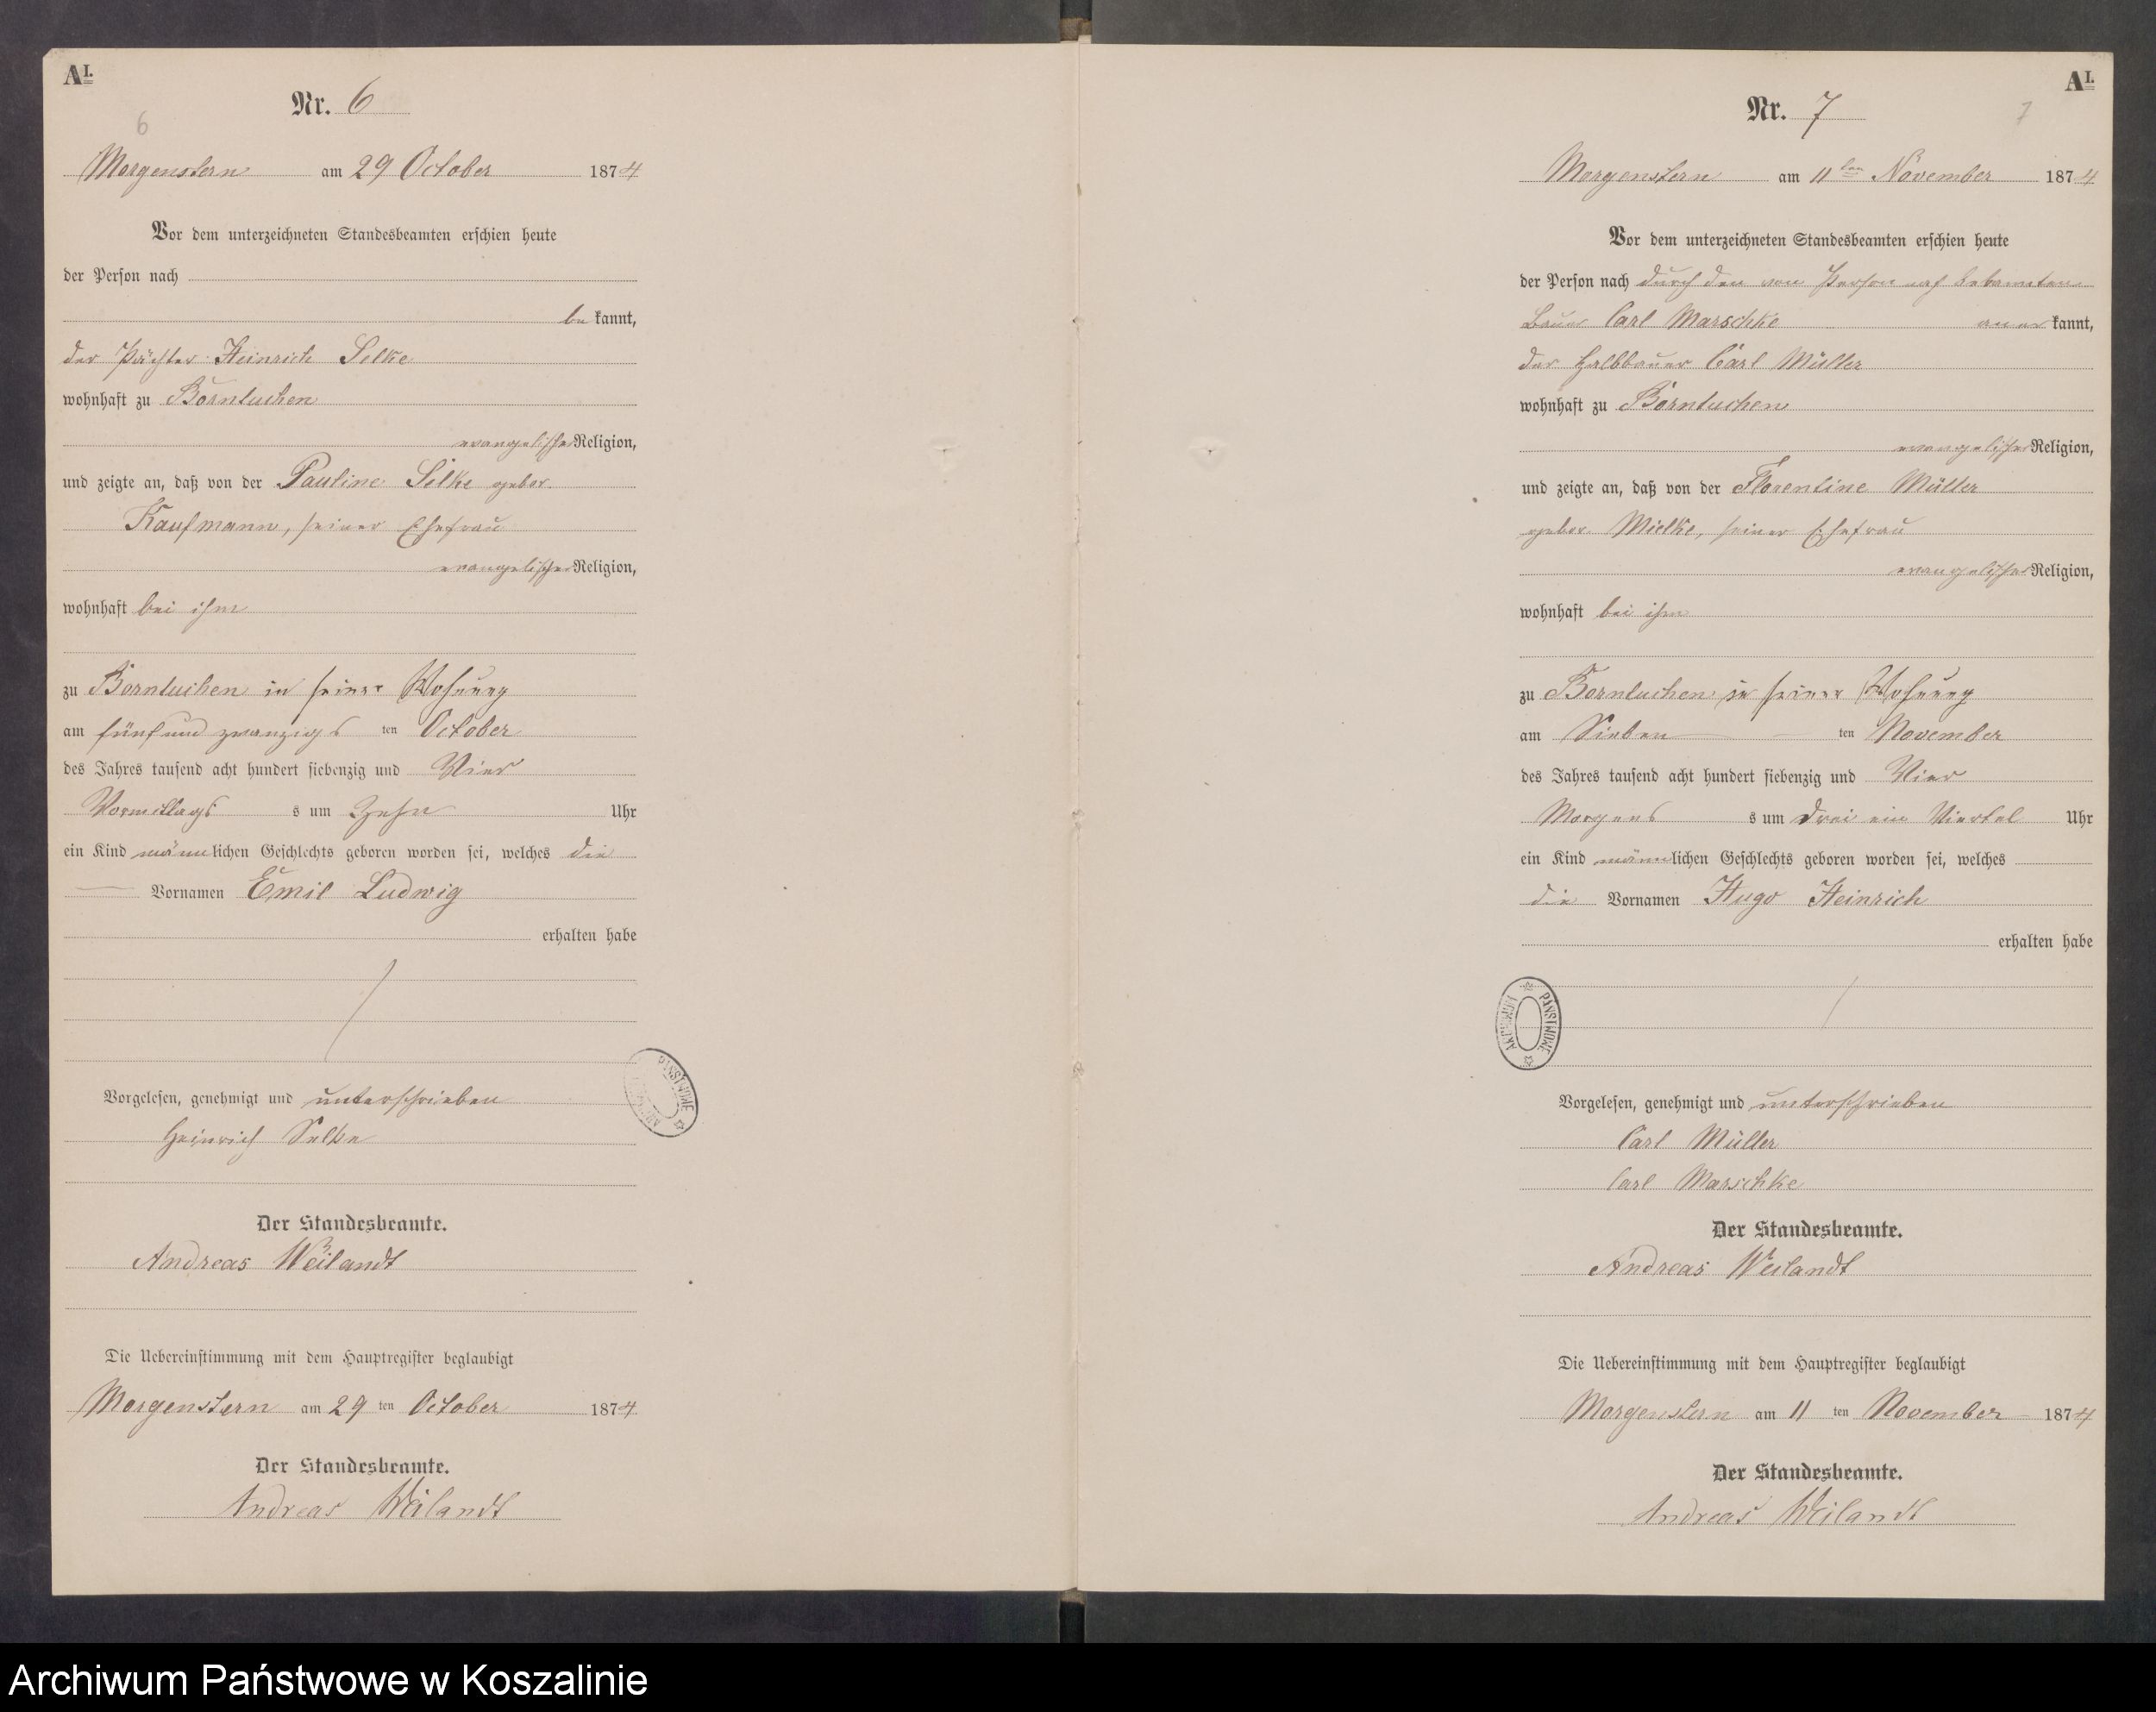 A I.
Nr. 6
6
Morgenstern am 29 October 1874
Vor dem unterzeichneten Standesbeamten erschien heute
der Person nach
be kannt,
der Pächter Heinrich Selke
wohnhaft zu Borntuchen
evangelischer Religion,
und zeigte an, daß von der Pauline Selke gebor.
Kaufmann, seiner Ehefrau
evangelischer Religion,
wohnhaft bei ihm
zu Borntuchen in seiner Wohnung
am fünf und zwanzigs ten October
des Jahres tausend acht hundert siebenzig und Vier
Vormittags s um Zehn Uhr
ein Kind männlichen Geschlechts geboren worden sei, welches die
Vornamen Emil Ludwig
erhalten habe
Vorgelesen, genehmigt und unterschrieben
Heinrich Selke
Der Standesbeamte.
Andreas Weilandt
Die Uebereinstimmung mit dem Hauptregister beglaubigt
Morgenstern am 29 ten October 1874
Der Standesbeamte.
Andreas Weilandt
PAŃSTWOWE
A I.
Nr. 7
7
Morgenstern am 11 ten November 1874
Vor dem unterzeichneten Standesbeamten erschien heute
der Person nach durch den von Person nach bekannten
Bauer Carl Marschke aner kannt,
der Halbbauer Carl Müller
wohnhaft zu Borntuchen
evangelischer Religion,
und zeigte an, daß von der Florentine Müller
gebor. Mielke, seiner Ehefrau
evangelischer Religion,
wohnhaft bei ihm
zu Borntuchen in seiner Wohnung
am Sieben ten November
des Jahres tausend acht hundert siebenzig und Vier
Morgens s um drei ein Viertel Uhr
ein Kind männlichen Geschlechts geboren worden sei, welches
die Vornamen Hugo Heinrich
erhalten habe
ARCHIWUM PAŃSTWOWE
Vorgelesen, genehmigt und unterschrieben
Carl Müller
Carl Marschke
Der Standesbeamte.
Andreas Weilandt
Die Uebereinstimmung mit dem Hauptregister beglaubigt
Morgenstern am 11 ten November 1874
Der Standesbeamte.
Andreas Weilandt
Archiwum Państwowe w Koszalinie